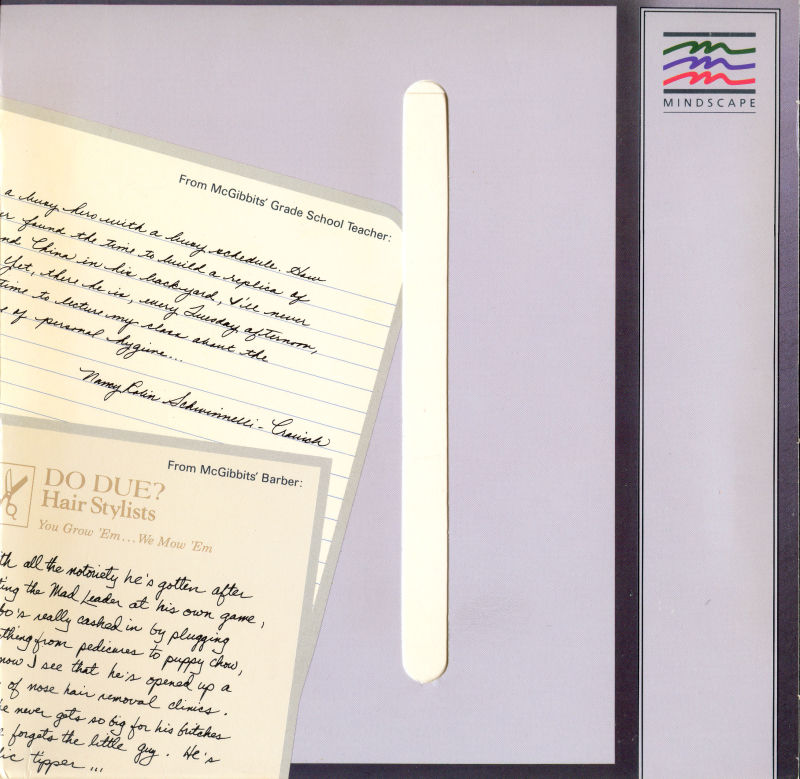 From McGibbits' Grade School Teacher:
a busy hero with a busy schedule. How
found the time to build a replica of
China in his backyard, I'll never
Yet, there he is, every Tuesday afternoon,
time to lecture my class about the
of personal hygiene...
Nancy Robin Schwinnelli-
From McGibbits' Barber:
DO DUE?
Hair Stylists
You Grow 'Em...We Mow 'Em
th all the notoriety he's gotten after
ting the Mad Leader at his own game,
bo's really cashed in by plugging
thing from pedicures to puppy chow,
now I see that he's opened up a
of nose hair removal clinics.
he never gets so big for his britches
forgets the little guy. He's
ic tipper...
MINDSCAPE